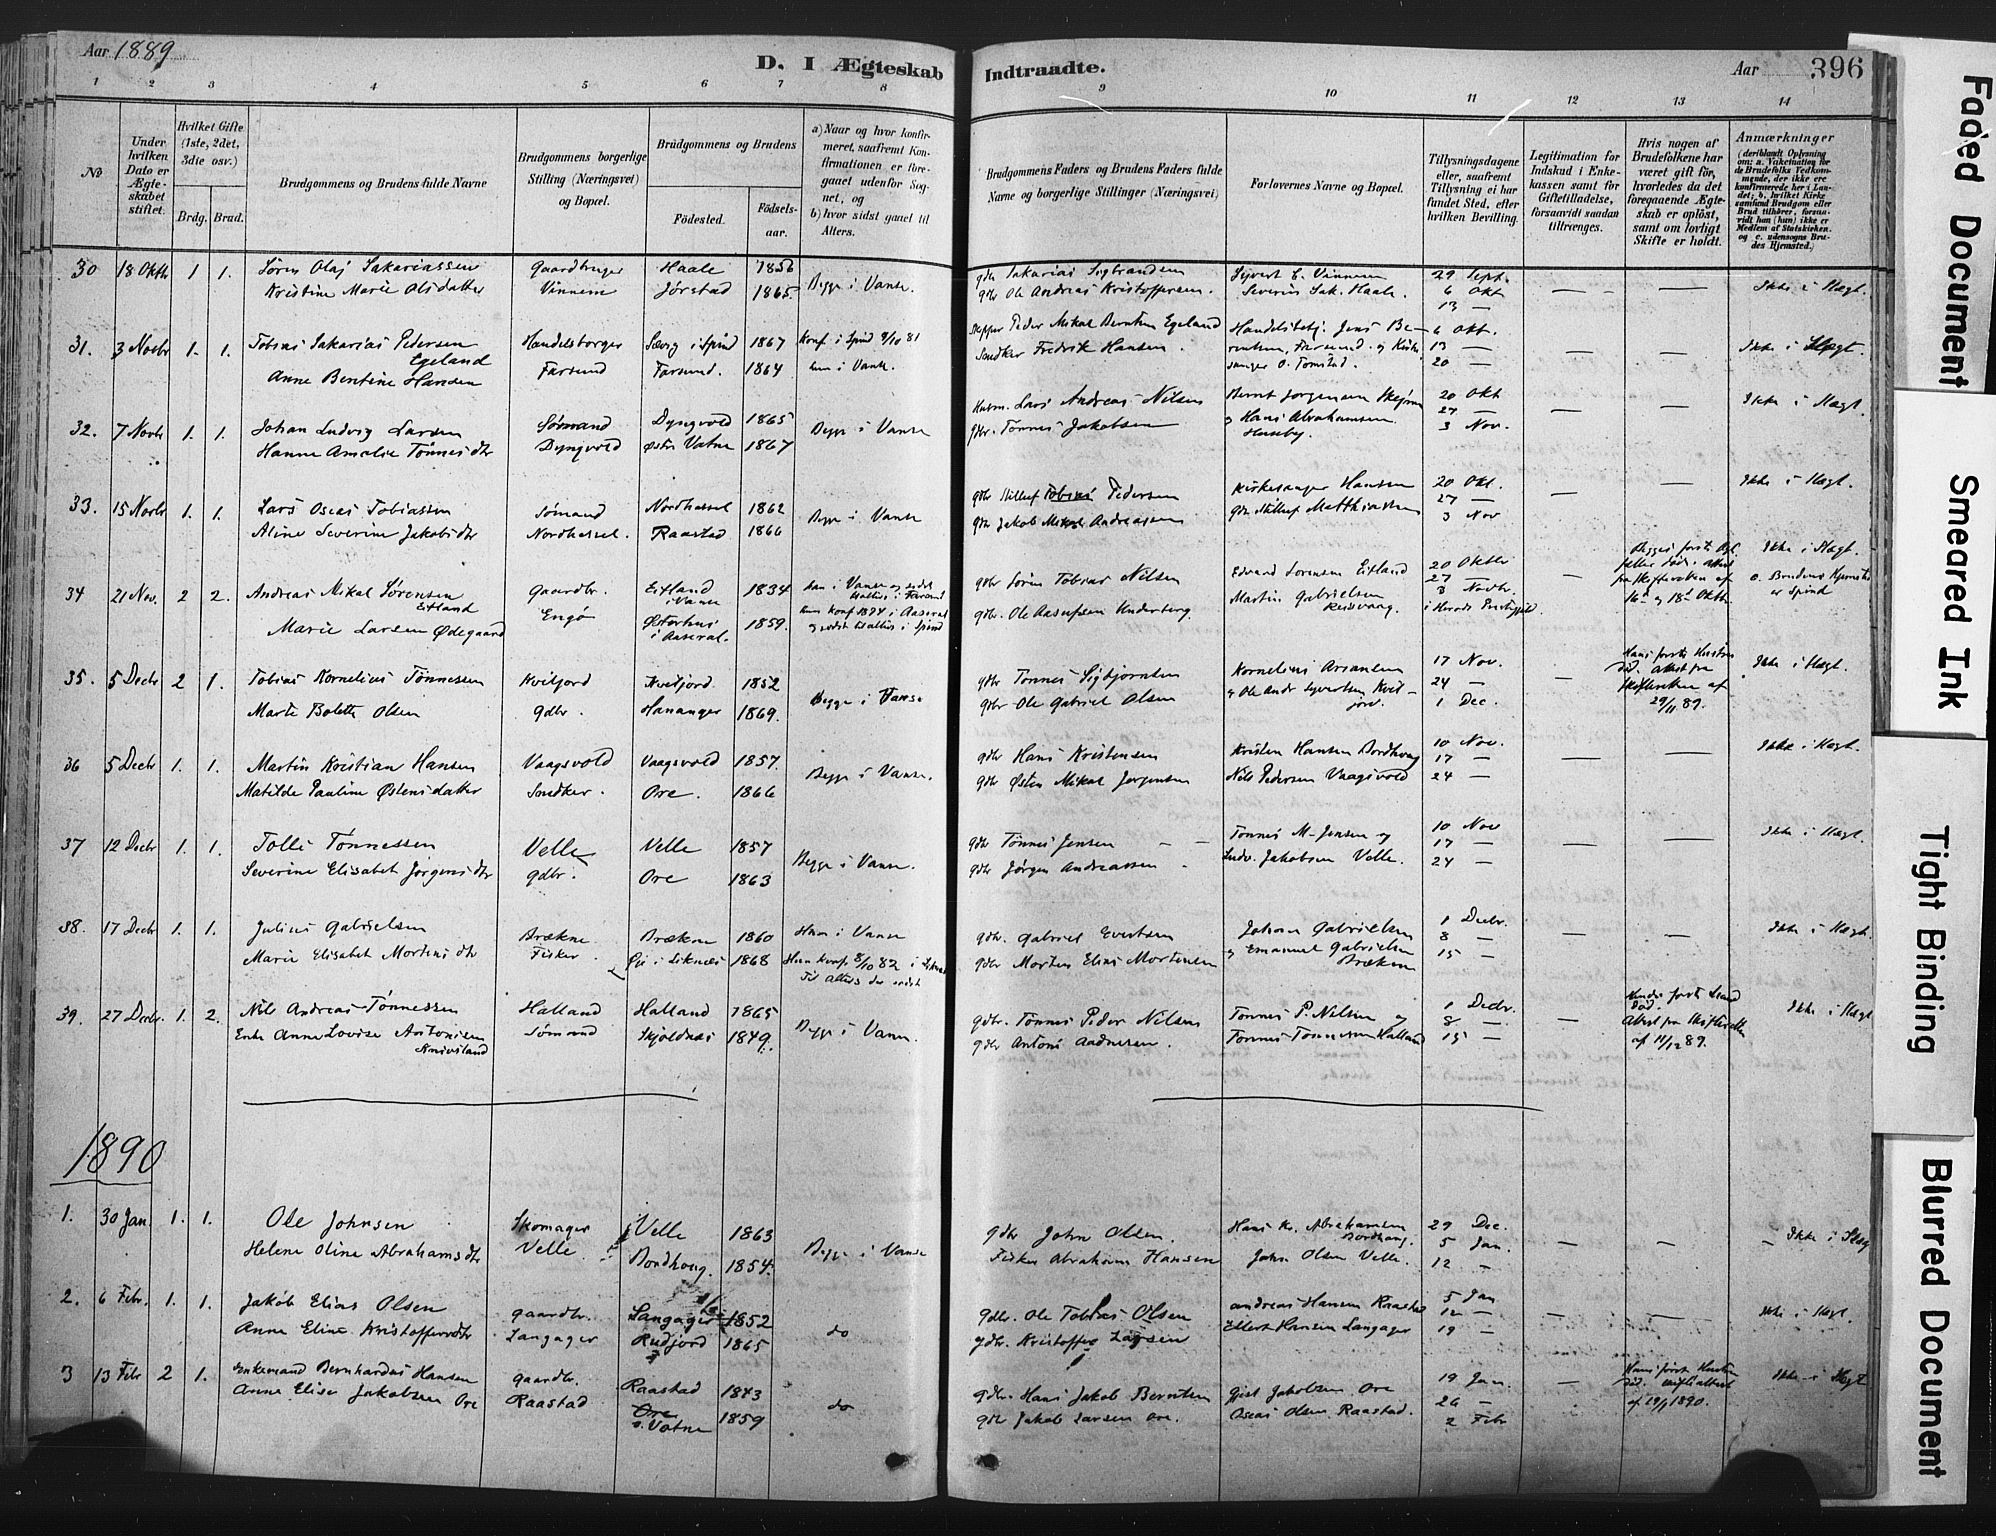 Aar 1889
D. I Ægteskab Indtraadte.
Aar 396
1 2 3 4 5 6 7 8 9 10 11 12 13 14
No
Under hvilken Dato er Ægteskabet stiftet.
Hvilket Gifte (1ste, 2det, 3die osv.)
Brdg. Brud.
Brudgommens og Brudens fulde Navne
Brudgommens borgerlige Stilling (Næringsvei) og Bopæl.
Brudgommens og Brudens
Fødested. Fødselsaar.
a) Naar og hvor konfirmeret, saafremt Konfirmationen er foregaaet udenfor Sognet, og
b) hvor sidst gaaet til Alters.
Brudgommens Faders og Brudens Faders fulde Navne og borgerlige Stillinger (Næringsvei)
Forlovernes Navne og Bopæl.
Tillysningsdagene eller, saafremt Tillysning ei har fundet Sted, efter hvilken Bevilling.
Legitimation for Indskud i Enkekassen samt for Giftetilladelse, forsaavidt saadan tiltrænges.
Hvis nogen af Brudefolkene har været gift før, hvorledes da det foregaaende Ægteskab er opløst, samt om lovligt Skifte er holdt.
Anmærkninger
(deriblandt Oplysning om: a. Vakcination for de Brudefolks Vedkommende, der ikke ere konfirmerede her i Landet; b. hvilket Kirkesamfund Brudgom eller Brud tilhører, forsaavidt han (hun) ikke er Medlem af Statskirken. og c. udensogns Brudes Hjemsted.)
30 18 Oktb 1 1. Søren Olaj Sakariassen Gaardbruger Haale 1856 Begge i Vanse. gdbr Sakarias Sigbrandsen Sijvert E. Vinnem 29 Sept. — — Ikke i Slægt.
Kristine Marie Olsdatter Vinnem Jørstad 1865. gdbr Ole Andreas Kristoffersen. Severin Sak. Haale. 6 Okt
13 —
31. 3 Novbr 1. 1. Tobias Sakarias Pedersen Handelsborger i Spind 1867 Konf. i Spind 9/10 81 Skipper Peder Mikal Berntsen Egeland Handelsbetj. Jens Be- 6 Okt. — — Ikke i Slægt.
Egeland Farsund Farsund. 1864 hun i Vanse. Snedker Fredrik Hansen. rentsen, Farsund og Kirke- 13 —
Anne Bentine Hansen sanger O. Tomstad. 20 —
32. 7 Novb 1. 1. Johan Ludvig Larsen Sømand Dyngvold 1865 Begge i Vanse Husm. Lars Andreas Nilsen Bernt Jørgensen 20 Okt — — Ikke i Slægt.
Hanne Amalie Tønnesdtr Dyngvold Østre Vatne 1867 gdbr. Tønnes Jakobsen og Hans Abrahamsen 27 —
Huseby. 3 Nov.
33. 15 Novb 1. 1. Lars Oscar Tobiassen Sømand Nordhassel 1862 Begge i Vanse gdbr Tobias Pedersen Kirkesanger Hansen 20 Okt. — — Ikke i Slægt.
Aline Severine Jakobsdtr Nordhassel. Raastad 1866 gdbr Jakob Mikal Andreassen gdbr Matthiassen 27 —
3 Nov
34 21 Nov. 2 2. Andreas Mikal Sørensen Gaardbr. Eitland 1834 han i Vanse gdbr Søren Tobias Nilsen Edvard Sorensen Eitland 20 Oktbr — Ikke i Slægt.
Eitland Engø i Vanse gdbr. Ole Aasufsen Underberg. Martin Gabrielsen 27 — c. Brudens Hjemsted
Marie Larsen Ødegaard Østerhus 1859. hun konf 1874 i Aaseral 3 Novbr. er Spind
i Aaseral. og sidst til alters i Spind 16de og 18de Oktbr.
35. 5 Decbr 2 1. Tobias Kornelius Tønnessen Kviljord Kviljord. 1852 Begge i Vanse gdbr Tønnes Sigbjørnsen Kornelius Arsansen 17 Nov. — Hans første Hustru Ikke i Slægt.
Marte Bolette Olsen gdbr. Hananger 1869. gdbr Ole Gabriel Olsen og Ole Andr Syvertsen Kvil- 24 — død. Attest fra
jord. 1 Dec. Skifteretten af 29/11 89.
36 5 Decbr 1. 1. Martin Kristian Hansen Vaagsvold Vaagsvold 1857. Begge i Vanse. gdbr Hans Kristensen Kristen Hansen Bordhaug 10 Nov. — — Ikke i Slægt.
Matilde Pauline Østensdatter Snedker. Ore. 1866 gdbr Østen Mikal Jørgensen Nils Pedersen Vaagsvold 17 —
24 —
37 12 Decbr 1. 1. Tolli Tønnessen Velle Velle 1857 Begge i Vanse. gdbr Tønnes Jensen Tønnes M. Jensen og 10 Nov — Ikke i Slægt.
Severine Elisabet Jørgensdtr gdbr. Ore 1863 gdbr Jørgen Andreassen Ludv. Jakobsen Velle. 17 —
24 —
38. 17 Decbr 1. 1. Julius Gabrielsen Brækne Brækne 1860 Han i Vanse gdbr. Gabriel Evertsen Johan Gabrielsen 1 Decbr. — — Ikke i Slægt.
Marie Elisabet Mortensdtr Fisker i Liknes 1868 Hun konf 8/10 82 i gdbr Morten Elias Mortensen og Emanuel Gabrielsen 8 —
Til Alters der sidst Brækne 15 —
39. 27 Decbr. 1. 2. Nils Andreas Tønnessen Halland Halland 1865 Begge i Vanse. gdbr. Tønnes Peder Nilsen Tønnes P. Nilsen og 1 Decbr. — Hendes første Mand Ikke i Slægt
Enke Anne Lovise Antonisen Sømand Skjoldnes 1849. gdbr Antoni Aadnesen. Tønnes Tønnesen Halland 8 — død. Attest fra Skifteretten
15 — af 11/12 89.
1890
1. 30 Jan. 1. 1. Ole Johnsen Skomager Velle 1863 Begge i Vanse gdbr John Olsen. Hans Kr. Abrahamsen 29 Dec. — — Ikke i Slægt
Helene Oline Abrahamsdtr Velle Bordhaug. 1854. Fisker Abraham Hansen Bordhaug. 5 Jan.
John Olsen Velle. 12 —
2. 6 Febr. 1. 1. Jakob Elias Olsen gaardbr. Langager 1852 do gdbr. Ole Tobias Olsen Andreas Hansen Raastad 5 Jan — — Ikke i Slægt.
Anne Eline Kristoffersdtr Langager Rudjord 1865 gdbr. Kristoffer Larsen Ellert Hansen Langager 12 —
19 —
3 13 Febr 2 1. Enkemand Bernhardus Hansen gaardbr. Raastad 1843 do gdbr. Hans Jakob Berntsen Jakobsen Ore 19 Jan. — Hans første Hustru Ikke i Slægt
Anne Elise Jakobsen Ore Raastad Ore 1859 gdbr Jakob Larsen Ore. Oscar Olsen Raastad. 26 — død. Skifteattest
ø. Vatne 2 Febr af 19/1 1890.
Faded Document
Smeared Ink
Tight Binding
Blurred Document